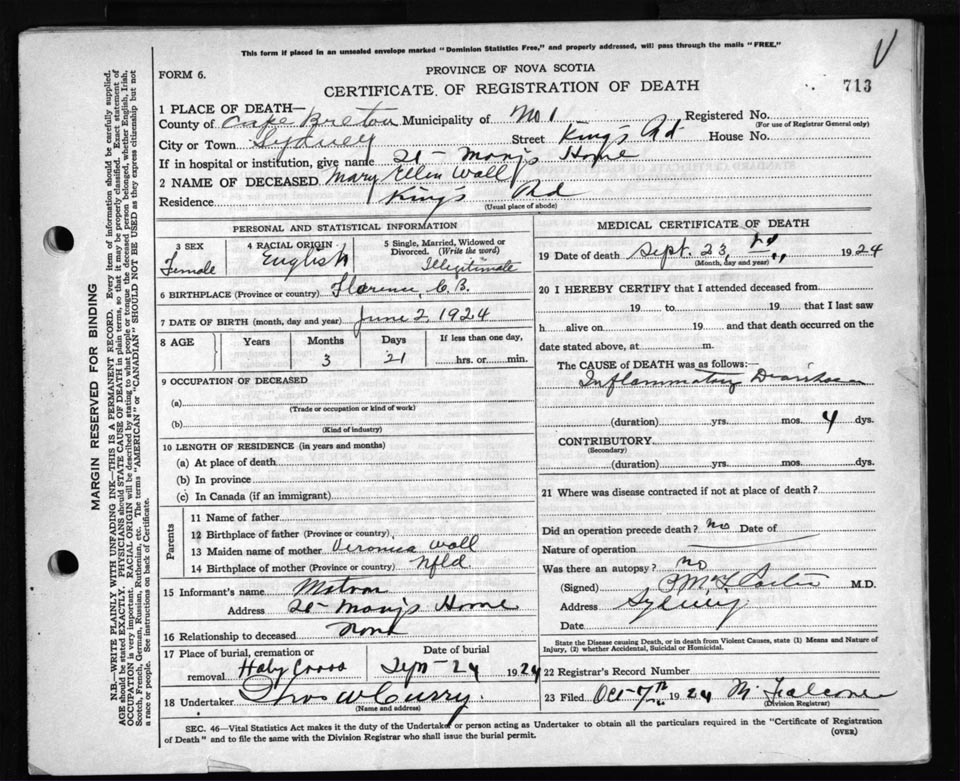 This form if placed in an unsealed envelope marked "Dominion Statistics Free," and properly addressed, will pass through the mails "FREE."
FORM 6.
PROVINCE OF NOVA SCOTIA
CERTIFICATE OF REGISTRATION OF DEATH
713
1 PLACE OF DEATH—
County of Cape Breton Municipality of No 1 Registered No.
(For use of Registrar General only)
City or Town Sydney Street King's Rd House No.
If in hospital or institution, give name St- Mary's Home
2 NAME OF DECEASED Mary Ellen Wall
Residence King's Rd
(Usual place of abode)
PERSONAL AND STATISTICAL INFORMATION
3 SEX Female
4 RACIAL ORIGIN English
5 Single, Married, Widowed or Divorced. (Write the word) Illegitimate
6 BIRTHPLACE (Province or country) Florence, C.B.
7 DATE OF BIRTH (month, day and year) June 2, 1924
8 AGE Years Months Days If less than one day,
3 21 hrs. or min.
9 OCCUPATION OF DECEASED
(a)
(Trade or occupation or kind of work)
(b)
(Kind of industry)
10 LENGTH OF RESIDENCE (in years and months)
(a) At place of death
(b) In province
(c) In Canada (if an immigrant)
Parents
11 Name of father
12 Birthplace of father (Province or country)
13 Maiden name of mother Veronica Wall
14 Birthplace of mother (Province or country) Nfld
15 Informant's name Matron
Address St- Mary's Home
16 Relationship to deceased None
17 Place of burial, cremation or removal Holy Cross
Date of burial Sep- 24 1924
18 Undertaker Thos W Curry.
(Name and address)
MEDICAL CERTIFICATE OF DEATH
19 Date of death Sept. 23, 1924
(Month, day and year)
20 I HEREBY CERTIFY that I attended deceased from
19 to 19 that I last saw
h alive on 19 and that death occurred on the
date stated above, at m.
The CAUSE OF DEATH was as follows:
Inflammatory Diarrhoea
(duration) yrs. mos. 4 dys.
CONTRIBUTORY
(Secondary)
(duration) yrs. mos. dys.
21 Where was disease contracted if not at place of death?
Did an operation precede death? no Date of
Nature of operation
Was there an autopsy? no
(Signed) M.D.
Address Sydney
Date
State the Disease causing Death, or in death from Violent Causes, state (1) Means and Nature of Injury, (2) whether Accidental, Suicidal or Homicidal.
22 Registrar's Record Number
23 Filed Oct- 7th 1924 M. Falconer
(Division Registrar)
SEC. 46—Vital Statistics Act makes it the duty of the Undertaker or person acting as Undertaker to obtain all the particulars required in the "Certificate of Registration
of Death" and to file the same with the Division Registrar who shall issue the burial permit.
(OVER)
MARGIN RESERVED FOR BINDING
N.B.—WRITE PLAINLY WITH UNFADING INK—THIS IS A PERMANENT RECORD. Every item of information should be carefully supplied.
AGE should be stated EXACTLY. PHYSICIANS should STATE CAUSE OF DEATH in plain terms, so that it may be properly classified. Exact statement of
OCCUPATION is very important. RACIAL ORIGIN will be described by stating to what people or tongue the deceased person belonged, whether English, Irish,
Scotch, French, German, Russian, Ruthenian, etc. The terms "AMERICAN" or "CANADIAN" SHOULD NOT BE USED as they express citizenship but not
a race or people. See instructions on back of Certificate.